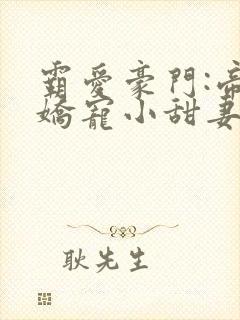 霸爱豪門:帝
嬌寵小甜妻
耿先生